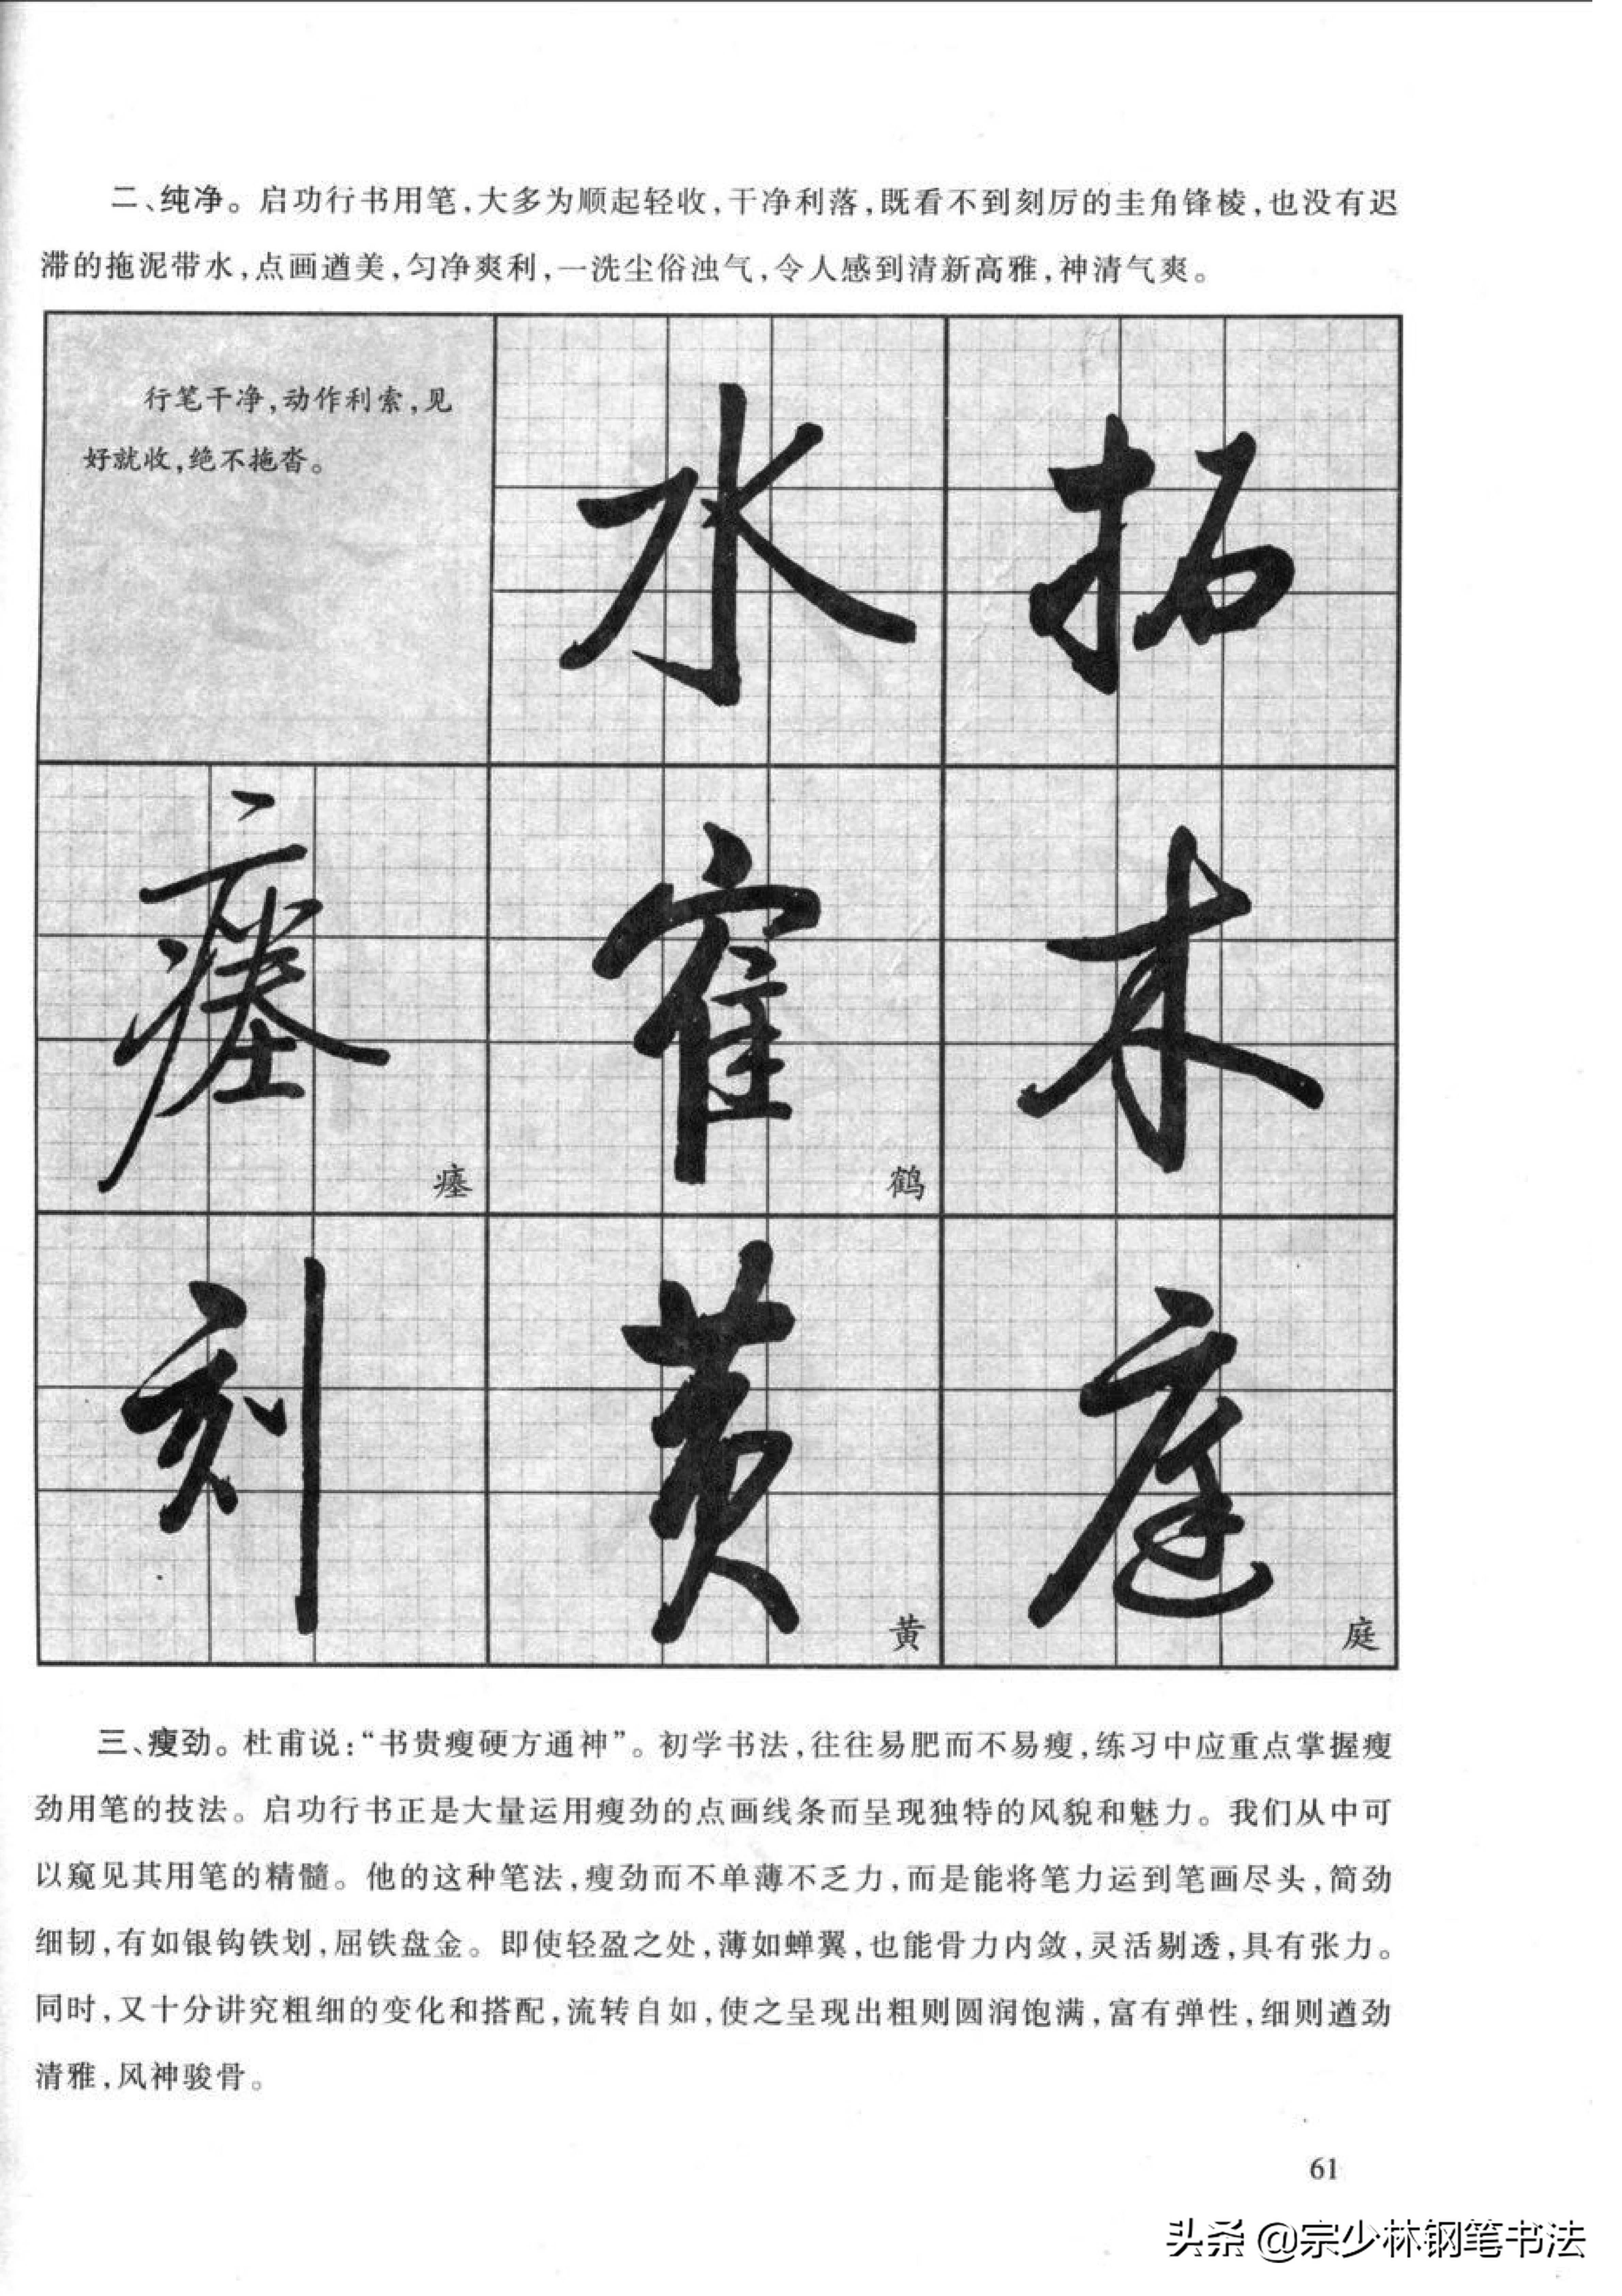 二、纯净。启功行书用笔,大多为顺起轻收,干净利落,既看不到刻厉的圭角锋棱,也没有迟
滞的拖泥带水,点画遒美,匀净爽利,一洗尘俗浊气,令人感到清新高雅,神清气爽。
行笔干净,动作利索,见
好就收,绝不拖沓。
水
拓
瘗
瘗
寉
鹤
木
刻
黄
黄
庭
庭
三、瘦劲。杜甫说:“书贵瘦硬方通神”。初学书法,往往易肥而不易瘦,练习中应重点掌握瘦
劲用笔的技法。启功行书正是大量运用瘦劲的点画线条而呈现独特的风貌和魅力。我们从中可
以窥见其用笔的精髓。他的这种笔法,瘦劲而不单薄不乏力,而是能将笔力运到笔画尽头,简劲
细韧,有如银钩铁划,屈铁盘金。即使轻盈之处,薄如蝉翼,也能骨力内敛,灵活剔透,具有张力。
同时,又十分讲究粗细的变化和搭配,流转自如,使之呈现出粗则圆润饱满,富有弹性,细则遒劲
清雅,风神骏骨。
61
头条 @宗少林钢笔书法